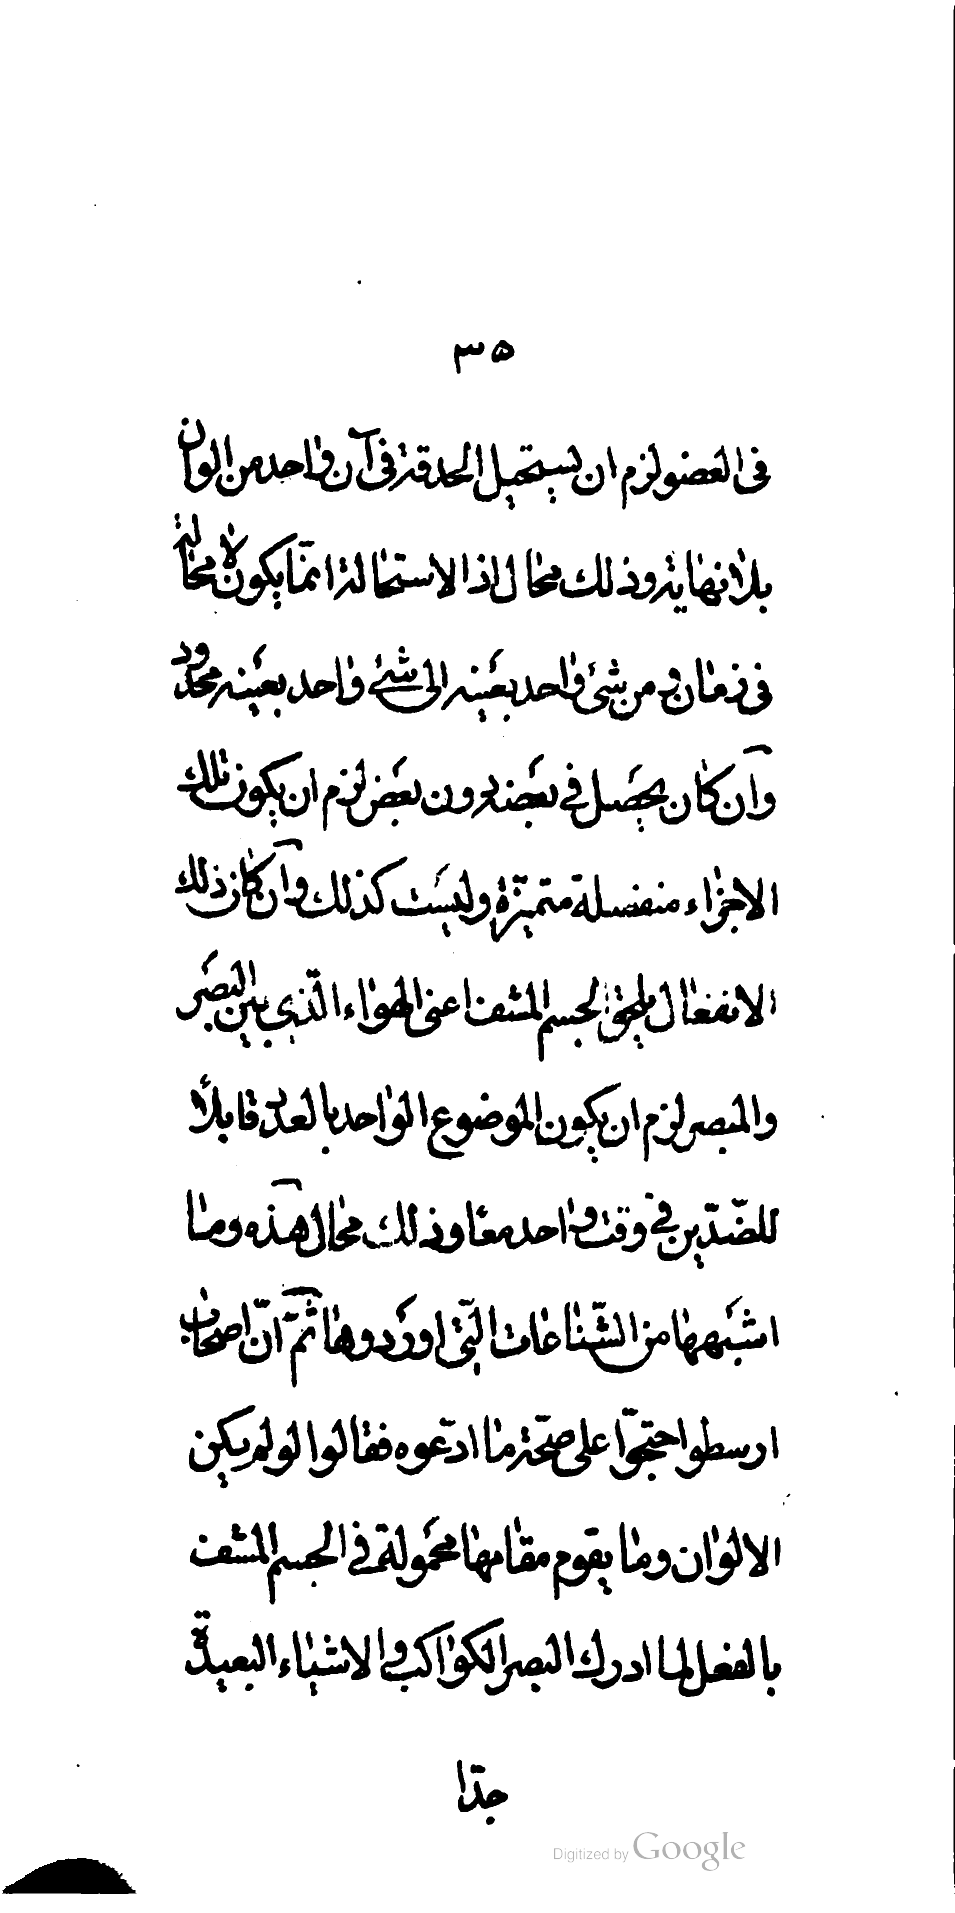 ٣٥
فى العضو لزم ان يستحيل الحدقة فى آن واحد من الوان
بلا نهاية وذلك محال اذ الاستحالة انما يكون لا محالة
فى زمان ومن شئ واحد بعينه الى شئ واحد بعينه محدود
وان كان يحصل فى بعضه دون بعض لزم ان يكون تلك
الاجزاء منفصلة متميزة وليست كذلك وان كان ذلك
الانفعال يلحق الجسم المشف اعنى الهواء الذى بين البصر
والمبصر لزم ان يكون الموضوع الواحد بالعدد قابلا
للضّدّين فى وقت واحد معا وذلك محال هذه وما
اشبهها من الشّناعات الّتى اوردوها ثمّ انّ اصحاب
ارسطو احتجّوا على صحّة ما ادّعوه فقالوا لو لم يكن
الالوان وما يقوم مقامها محمولة فى الجسم المشف
بالفعل لما ادرك البصر الكواكب والاشياء البعيدة
جدّا
Digitized by Google